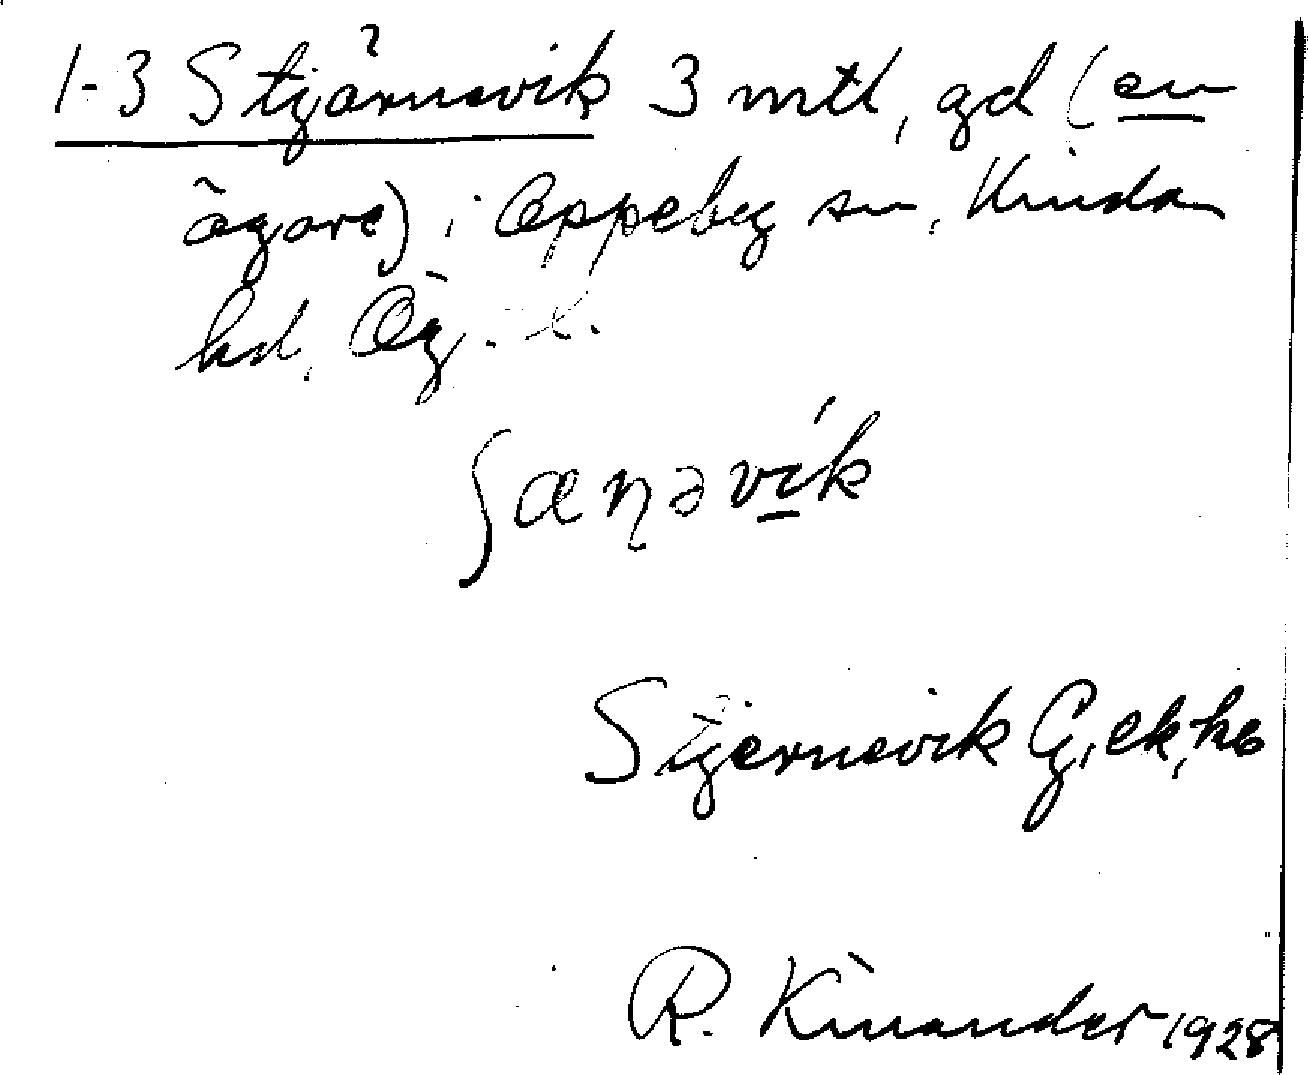 1-3 Stjärnevik 3 mtl, gd (en
ägare) i Oppeby sn, Kinda
hd, Ög. l.
ʃænəvik
Stjernevik G, ek, kb
R. Kinander 1928